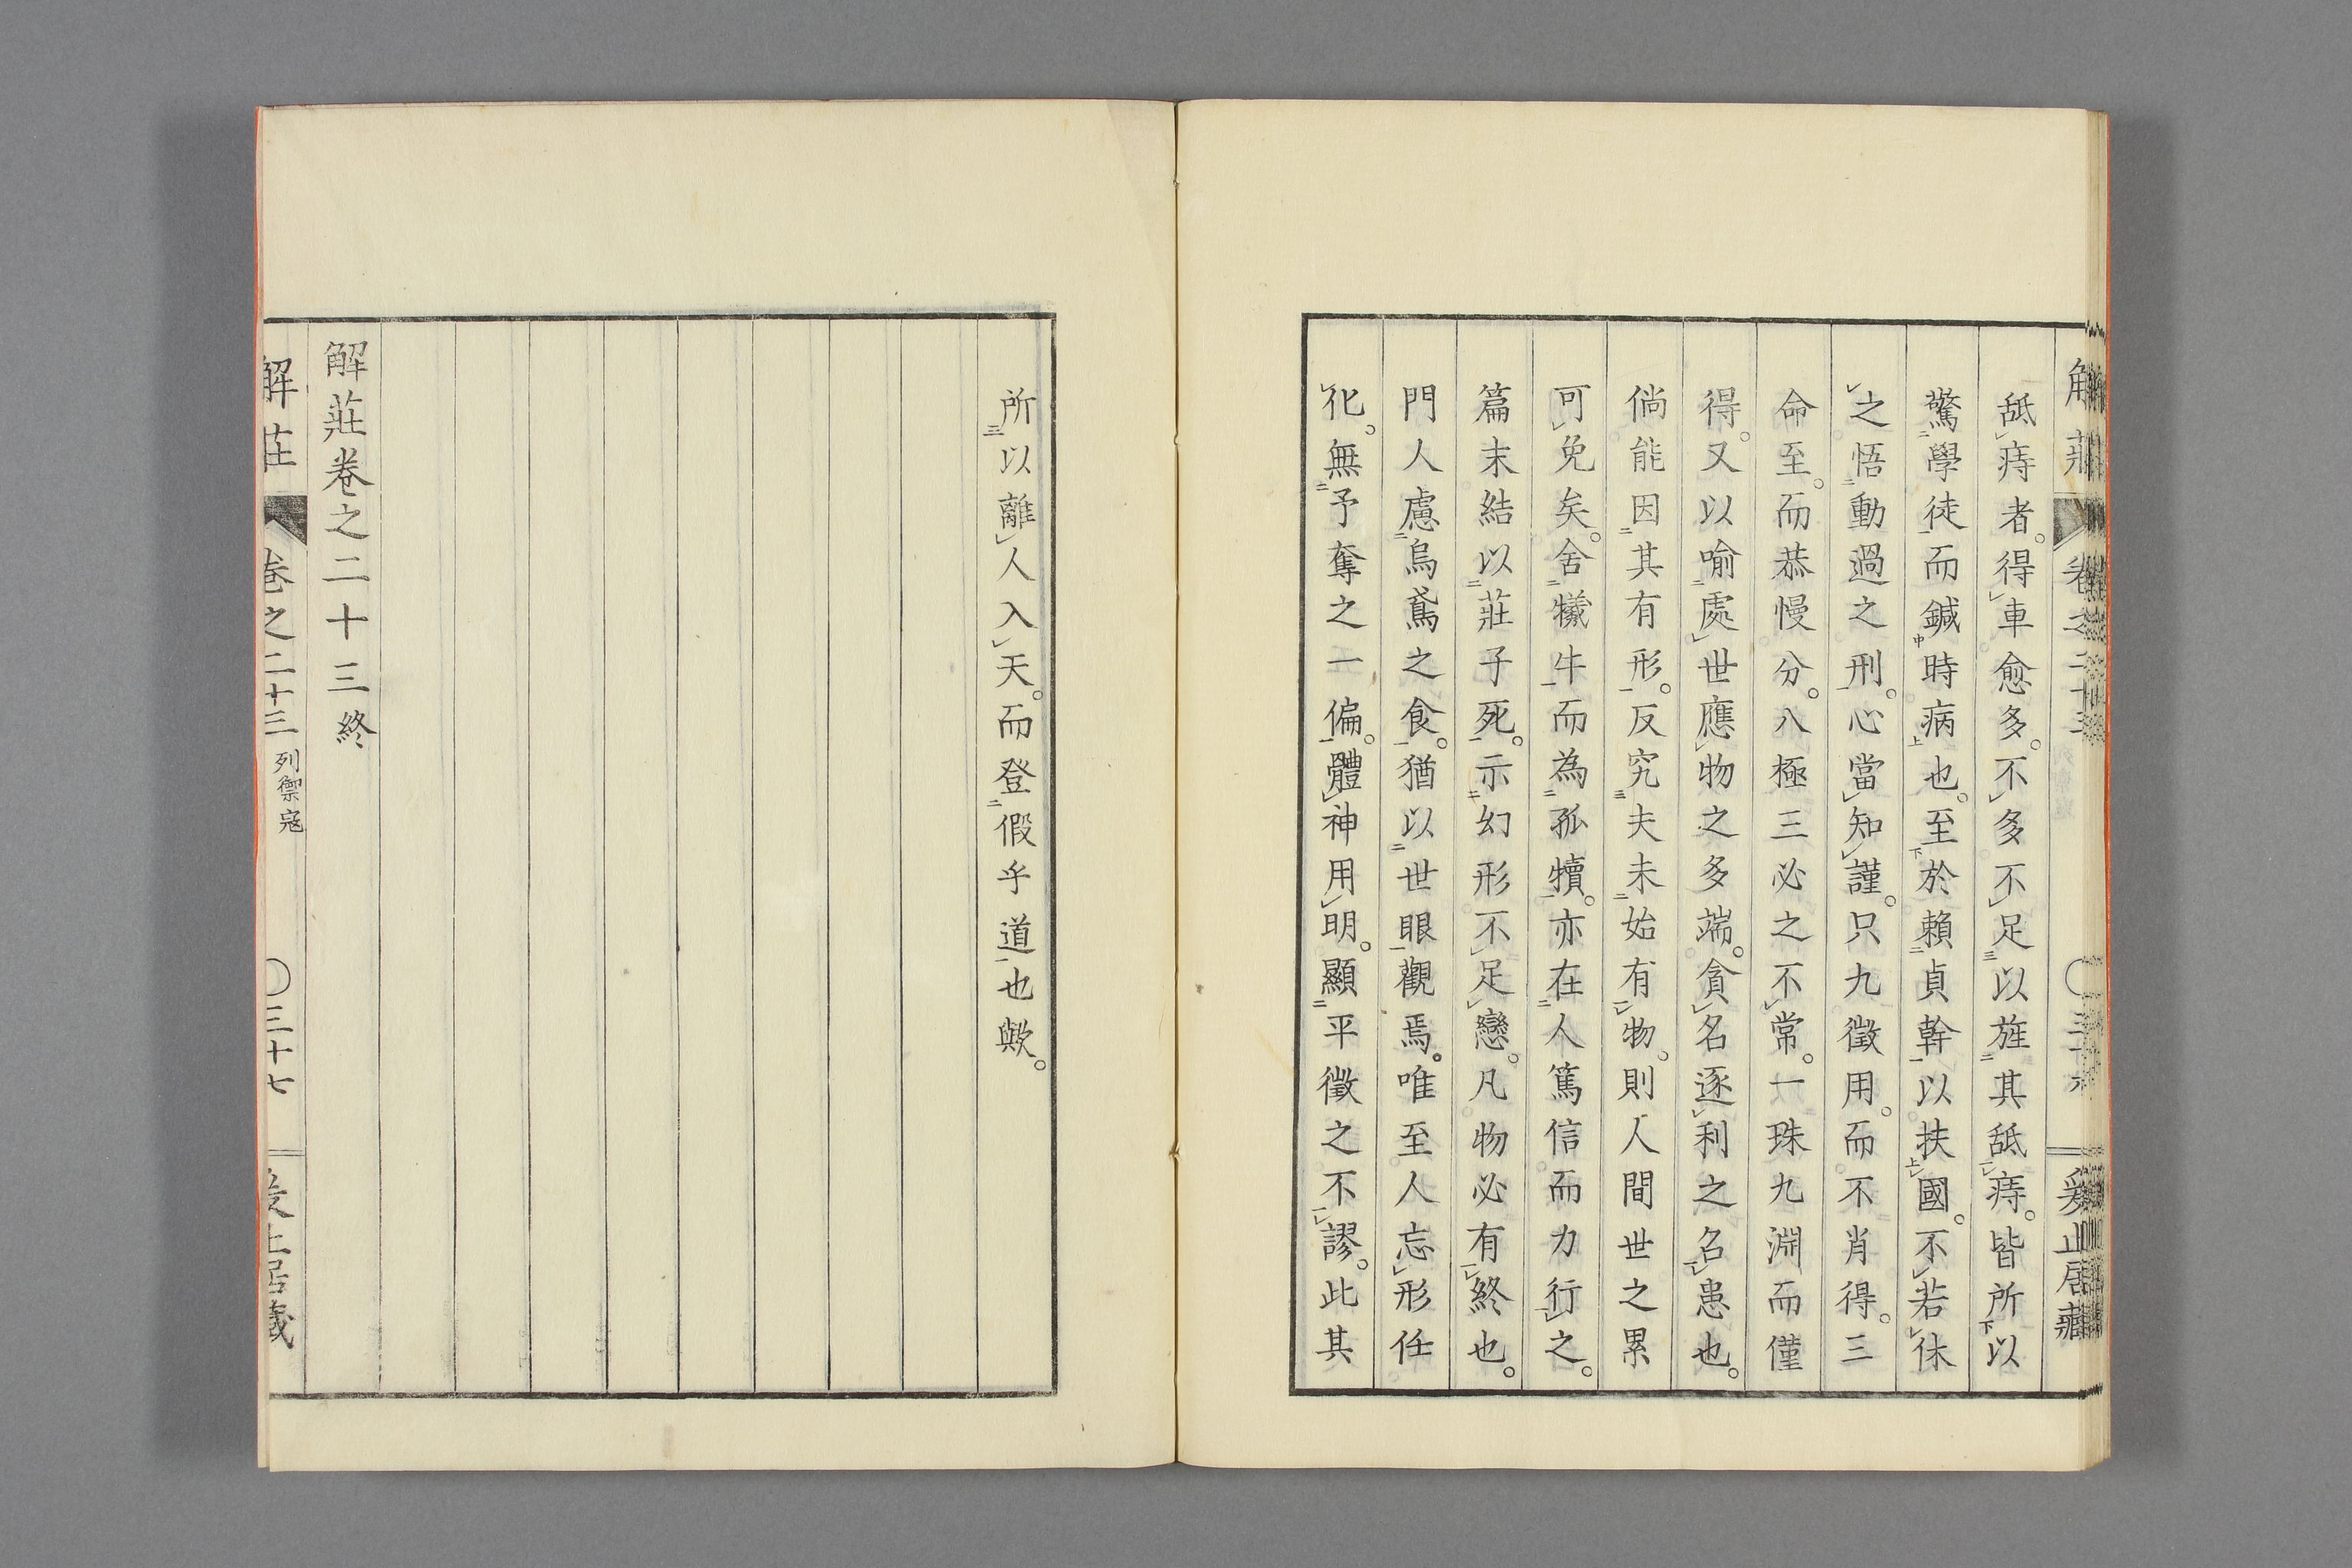 舐痔者。得車愈多。不多不足以旌其舐痔。皆所以
驚學徒而鍼時病也。至於賴貞幹以扶國。不若休
之悟動過之刑。心當知謹。只九徵用。而不肖得。三
命至。而恭慢分。八極三必之不常。一珠九淵而僅
得。又以喻處世應物之多端。貪名逐利之名患也。
倘能因其有形。反究夫未始有物。則人間世之累
可免矣。舍犧牛而為孤犢。亦在人篤信而力行之。
篇末結以莊子死。示幻形不足戀。凡物必有終也。
門人慮烏鳶之食。猶以世眼觀焉。唯至人忘形任
化。無予奪之一偏。體神用明。顯平徵之不謬。此其
所以離人入天。而登假乎道也歟。
解莊卷之二十三終
解莊 卷之二十三 列禦寇 〇三十七